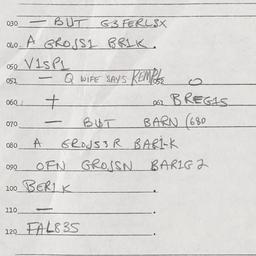 030 — BUT G3FERLSX
040 A GROJSS1 BR1K.
050 V1SP1
051 — Q WIFE SAYS KEMPL
060 + 061 BREGIS
070 — BUT BARN (680
080 A GROJS3R BAR1-K
090 OFN GROJSN BAR1G2
100 BER1K .
110 — .
120 FAL835 .